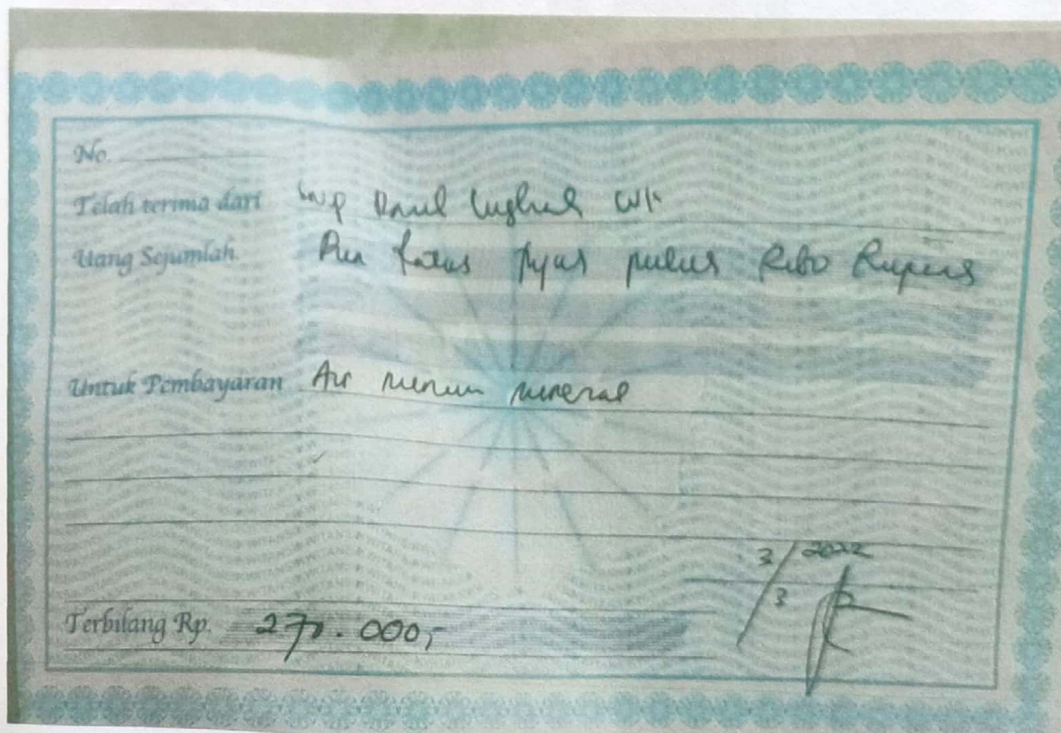 No.
Telah terima dari Smp Darul Lughah WK
Uang Sejumlah Dua Ratus Tujuh puluh Ribu Rupiah
Untuk Pembayaran Air minum mineral
3/3 2022
Terbilang Rp. 270.000,-